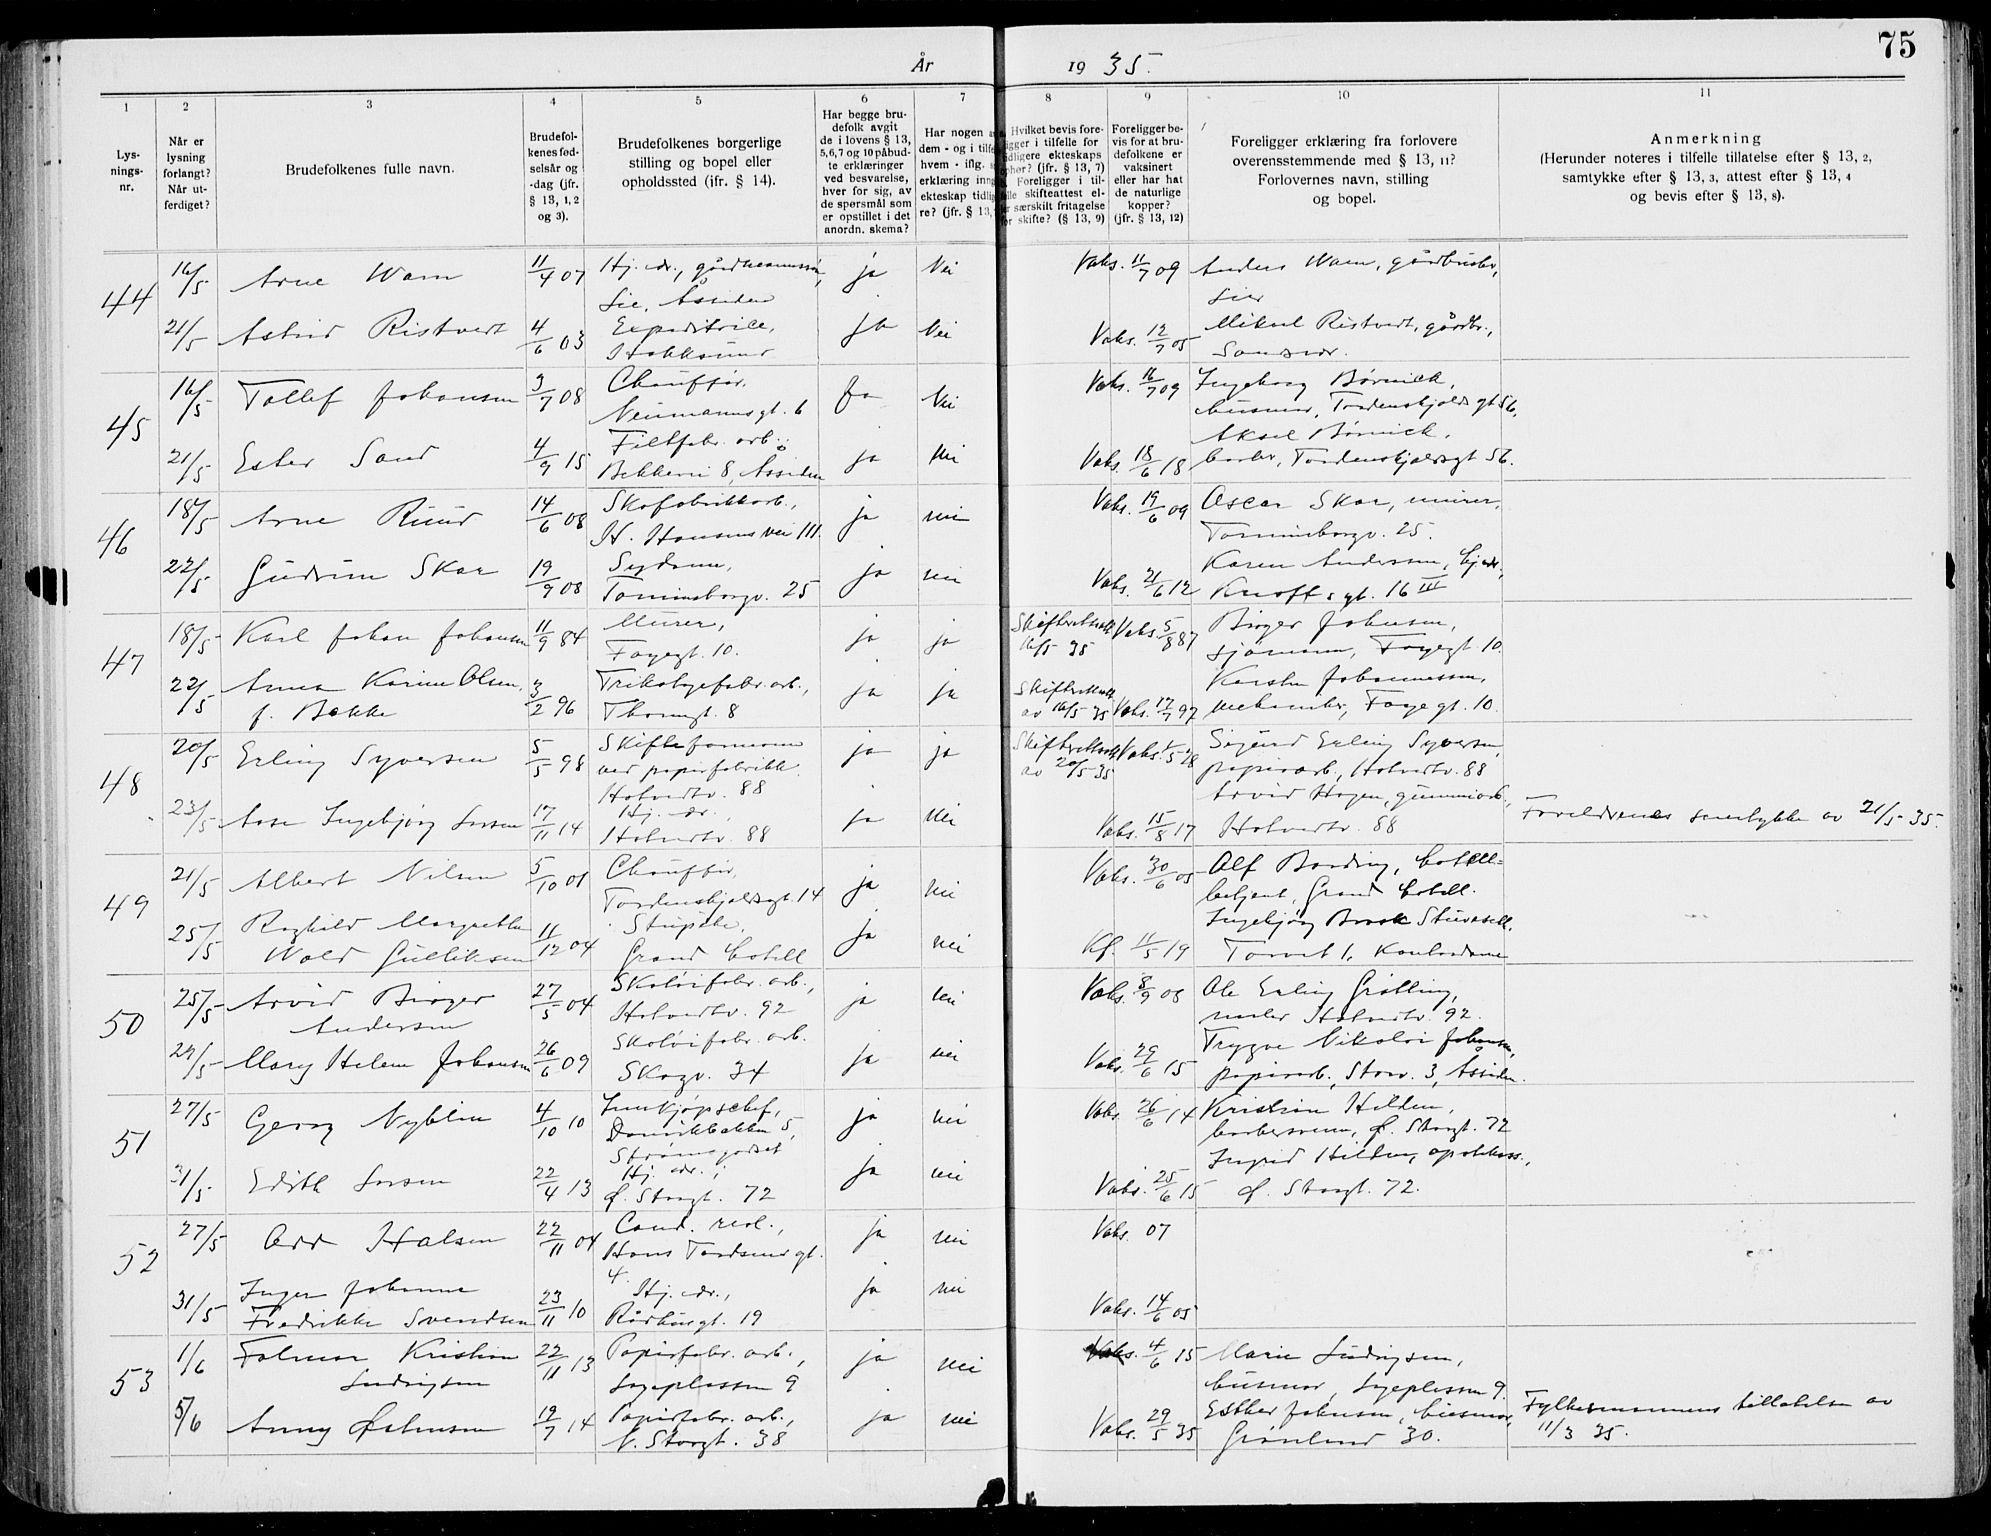 75
År 1935.
1 2 3 4 5 6 7 8 9 10 11
Lys-
nings-
nr.
Når er
lysning
forlangt?
Når ut-
ferdiget?
Brudefolkenes fulle navn.
Brudefol-
kenes fød-
selsår og
-dag (jfr.
§ 13, 1, 2
og 3).
Brudefolkenes borgerlige
stilling og bopel eller
opholdssted (ifr. § 14).
Har begge bru-
defolk avgit
de i lovens § 13,
5,6,7 og 10 påbud-
te erklæringer
ved besvarelse,
hver for sig, av
de spørsmål som
er opstillet i det
anordn. skema?
Har nogen
dem - og i tilfe
hvem - iflg.
erklæring inng
ekteskap tidlig
re? (jfr. § 13,
Hvilket bevis fore-
ligger i tilfelle for
tidligere ekteskaps
ophør? (jfr. § 13, 7)
Foreligger i til-
felle skifteattest el-
særskilt fritagelse
for skifte? (§ 13, 9)
Foreligger be-
vis for at bru-
defolkene er
vaksinert
eller har hat
de naturlige
kopper?
(jfr. § 13, 12)
Foreligger erklæring fra forlovere
overensstemmende med § 13, 11?
Forlovernes navn, stilling
og bopel.
Anmerkning
(Herunder noteres i tilfelle tillatelse efter § 13, 2,
samtykke efter § 13, 3, attest efter § 13, 4
og bevis efter § 13, 8).
44 16/5 Arne Wam 11/4 07 Hj. dr., gårdmannssøn, ja Nei Vaks. 11/7 09 Anders Wam, gårdbruker,
Lie, Åssiden Lier
21/5 Astrid Ristvedt 4/6 03 Expeditrise, ja Nei Vaks. 12/7 05 Mikael Ristvedt, gårdbr.,
Hokksund Sandsvær.
45 16/5 Tollef Johansen 3/7 08 Chauffør, ja Nei Vaks. 16/7 09 Ingeborg Børnick,
Neumannsgt. 6 husmor, Tordenskjolds gt 56.
21/5 Ester Sand 4/9 15 Filtfabr. arb., ja Nei Vaks. 18/6 18 Aksel Børnick,
Bekkevei 8, Åssiden Tordenskjoldsgt 56.
46 18/5 Arne Ruud 14/6 08 Skofabrikkarb., ja nei Vaks. 19/6 09 Oscar Skar, murer,
H. Hansens vei 111. Tomineborgv. 25.
22/5 Gudrun Skar 19/9 08 Sydame, ja nei Vaks. 21/6 12 Karen Andersen, hj. dr.,
Tomineborgv. 25 Knoffs gt. 16 III
47 18/5 Karl Johan Johansen 11/9 84 Murer, ja ja Skifteattest 16/5 35 Vaks. 5/8 87 Birger Johnsen,
Fayegt. 10. sjømann, Fayegt 10.
22/5 Anna Karine Olsen, 3/2 96 Trikotagefabr. arb., ja ja Skifteattest av 16/5 35 Vaks. 17/7 97 Karsten Johannessen,
f. Bakke Thomsgt. 8 mekaniker, Faye gt. 10.
48 20/5 Erling Syversen 5/5 98 Skifteformann ja ja Skifteattest av 20/5 35 Vaks. 1/5 28 Sigurd Erling Syversen,
ved papirfabrikk. papirarb., Hotvedtv. 88
Hotvedtv. 88
23/5 Aase Ingebjørg Larsen 17/11 14 Hj. dr., ja Nei Vaks. 15/8 17 Arvid Hagen, gummiarb., Foreldrenes samtykke av 21/5 35.
Hotvedtv. 88 Hotvedtv. 88
49 21/5 Albert Nilsen 5/10 01 Chauffør, ja nei Vaks. 30/6 05 Alf Bonding, hotell-
Tordenskjoldsgt. 14 betjent, Grand hotell.
25/5 Ragnhild Margrethe 11/12 04 Stuepike, ja nei Kf. 11/5 19 Ingebjørg Brock
Wold Gulliksen Grand hotell Torvet 1, Kontordame
50 25/5 Arvid Birger 27/5 04 Skotøifabr. arb., ja nei Vaks. 8/9 05 Ole Erling Grøtting,
Andersen Hotvedtv. 92 maler Hotvedtv. 92.
27/5 Mary Helene Johansen 26/6 09 Skotøifabr. arb. ja nei Vaks. 29/6 15 Trygve Nikolai Johansen,
Skogv. 34 papirarb., Storv. 3, Åssiden.
51 27/5 Georg Nyblin 4/10 10 Innkjøpschef, ja nei Vaks. 26/6 14 Kristian Hilden,
Danvikbakken 5, barbersvenn, Ø. Storgt. 72
Strømsgodset
31/5 Edith Larsen 22/4 13 Hj. dr., ja nei Vaks. 25/6 15 Ingrid Hilden,
Ø. Storgt. 72 Ø. Storgt. 72.
52 27/5 Odd Halsen 22/11 04 Cand. real., ja nei Vaks. 07
Hans Tordsens gt.
4.
31/5 Inger Johanne 23/11 10 Hj. dr., ja nei Vaks. 14/6 05
Fredrikke Svendsen Rådhusgt. 19
53 1/6 Folmar Kristian 22/11 13 Papirfabr. arb., ja nei Vaks. 4/6 15 Marie Ludvigsen,
Ludvigsen Løgeplassen 9 husmor, Løgeplassen 9.
5/6 Anny Østensen 19/7 14 Papirfabr. arb., ja nei Vaks. 29/5 35 Esther Johnsen, husmor, Fylkesmannens tillatelse av
N. Storgt. 38 Grønland 30. 11/3 35.